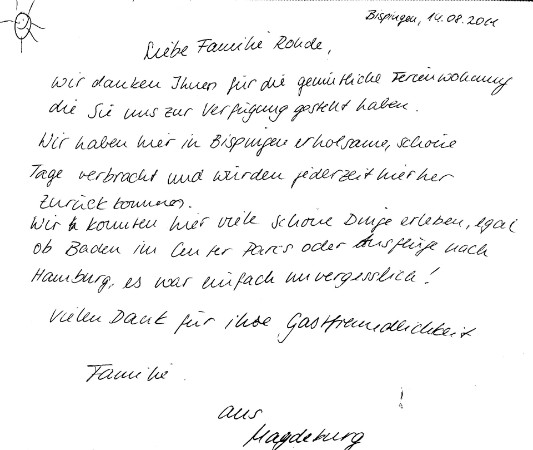 Bispingen, 14.08.2011
Liebe Familie Rohde,
Wir danken Ihnen für die gemütliche Ferienwohnung
die Sie uns zur Verfügung gestellt haben.
Wir haben hier in Bispingen erholsame, schöne
Tage verbracht und würden jederzeit hierher
zurück kommen.
Wir konnten hier viele schöne Dinge erleben, egal
ob Baden im Center Parcs oder Ausflüge nach
Hamburg, es war einfach unvergesslich!
Vielen Dank für ihre Gastfreundlichkeit
Familie
aus
Magdeburg